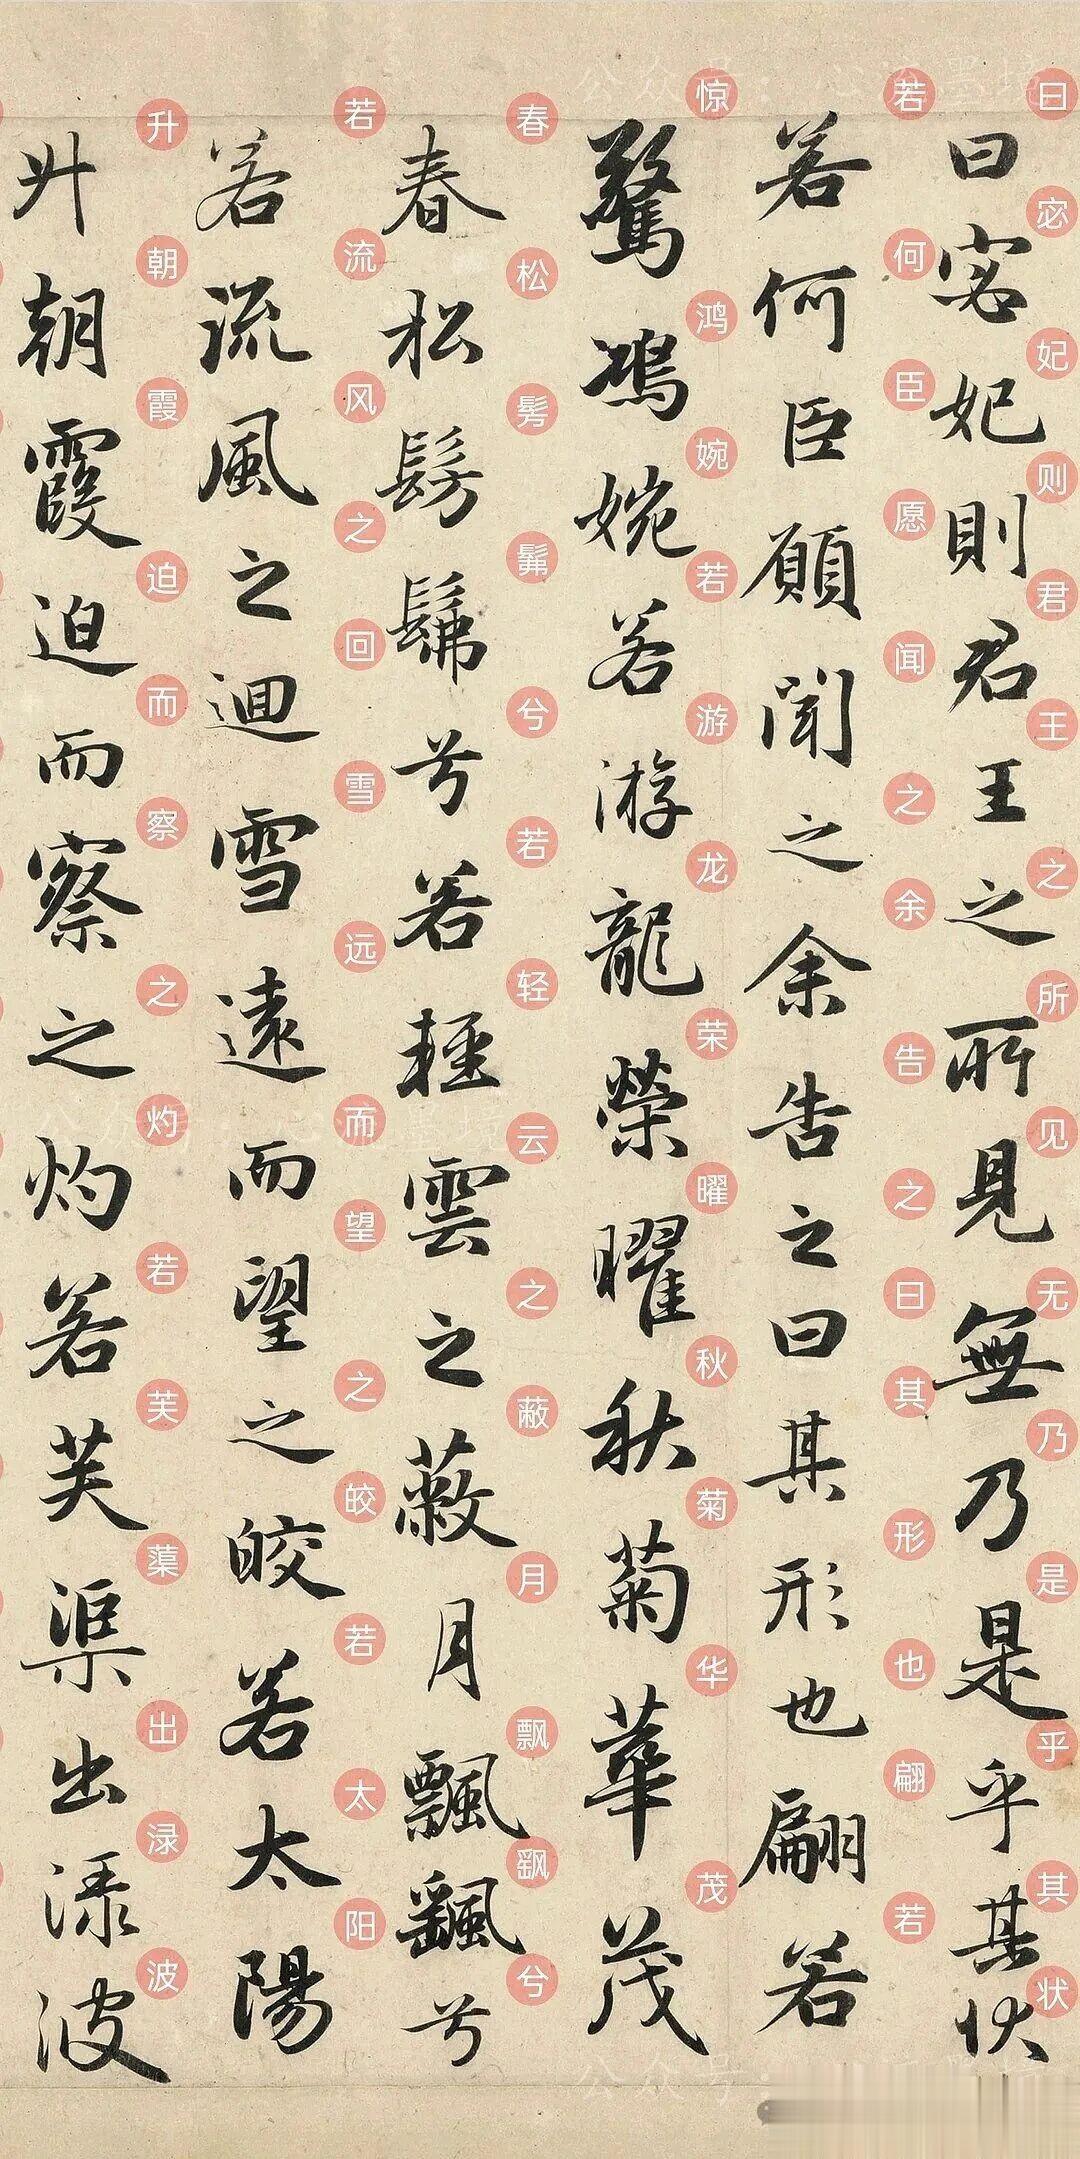 曰宓妃則君王之所見無乃是乎其状
若何臣願聞之余告之曰其形也翩若
驚鴻婉若游龍榮曜秋菊華茂
春松髣髴兮若輕雲之蔽月飄飖兮
若流風之迴雪遠而望之皎若太陽
升朝霞迫而察之灼若芙渠出渌波
曰宓妃则君王之所见无乃是乎其状
若何臣愿闻之余告之曰其形也翩若
惊鸿婉若游龙荣曜秋菊华茂
春松髣髴兮若轻云之蔽月飘飖兮
若流风之回雪远而望之皎若太阳
升朝霞迫而察之灼若芙蕖出渌波